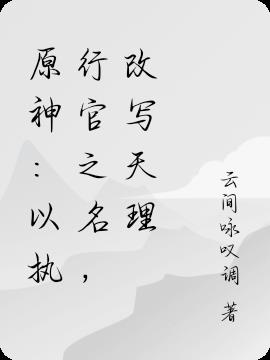 原神：以执
行官之名，
改写天理
云间咏叹调 著